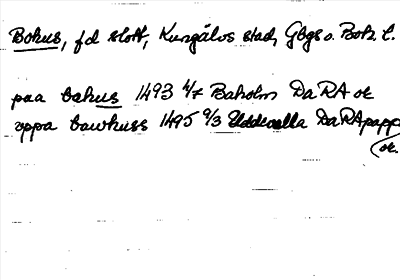 Bohus, fd slott, Kungälvs stad, Gbgs o. Boh. l.
paa bahus 1493 4/7 Baholm DaRA or
oppa bawhuss 1495 9/3 Uddevalla DaRApapp
or.